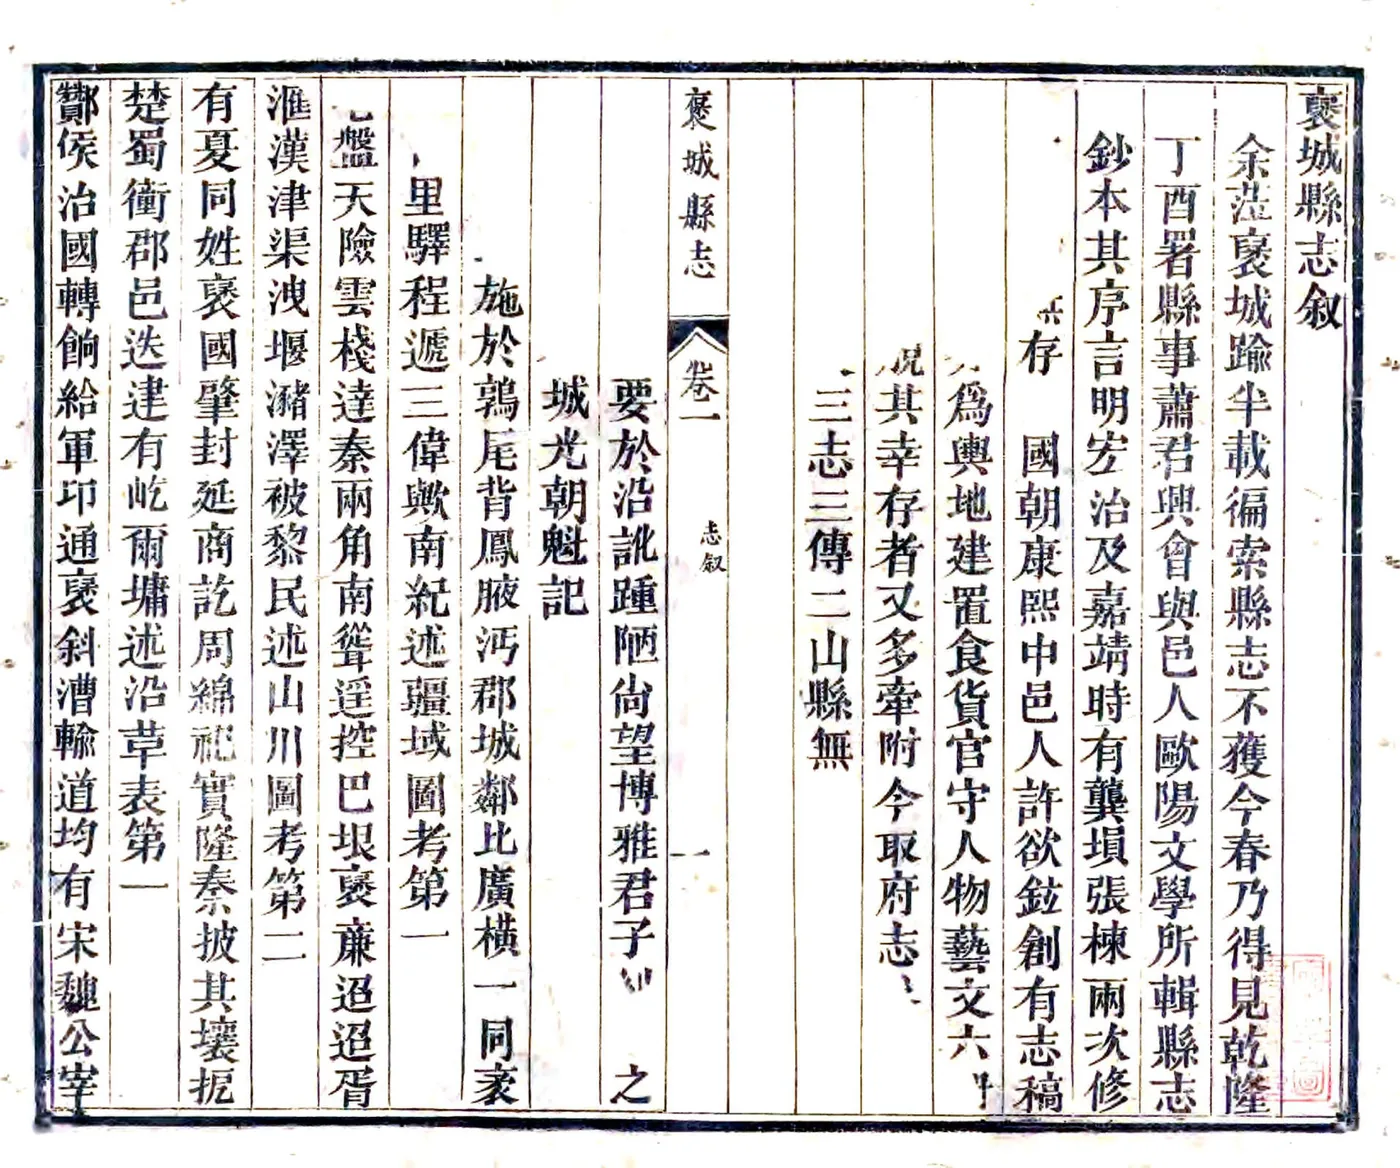 褒城縣志叙
余蒞褒城踰半載徧索縣志不獲今春乃得見乾隆
丁酉署縣事蕭君興會與邑人歐陽文學所輯縣志
鈔本其序言明宏治及嘉靖時有龔塤張楝兩次修
存 國朝康熙中邑人許欲鉉創有志稿
爲輿地建置食貨官守人物藝文六
況其幸存者又多牽附今取府志
三志三傳二山縣無
要於沿訛踵陋尙望博雅君子 之
城光朝魁記
褒城縣志 卷一 志叙 一
施於鶉尾背鳳腋沔郡城鄰比廣橫一同袤
里驛程遞三偉歟南紀述疆域圖考第一
盤天險雲棧達秦兩角南聳遥控巴垠褒亷迢迢胥
滙漢津渠洩堰瀦澤被黎民述山川圖考第二
有夏同姓褒國肇封延商訖周綿祀實隆秦披其壤扼
楚蜀衝郡邑迭建有屹爾墉述沿革表第一
酇侯治國轉餉給軍卭通褒斜漕輸道均有宋魏公宰